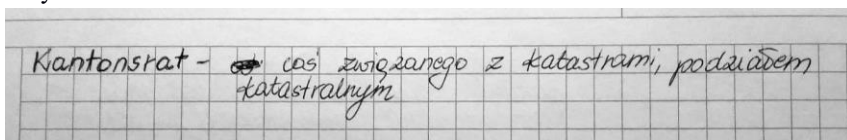 Kantonsrat - coś związanego z katastrami, podziałem
katastralnym